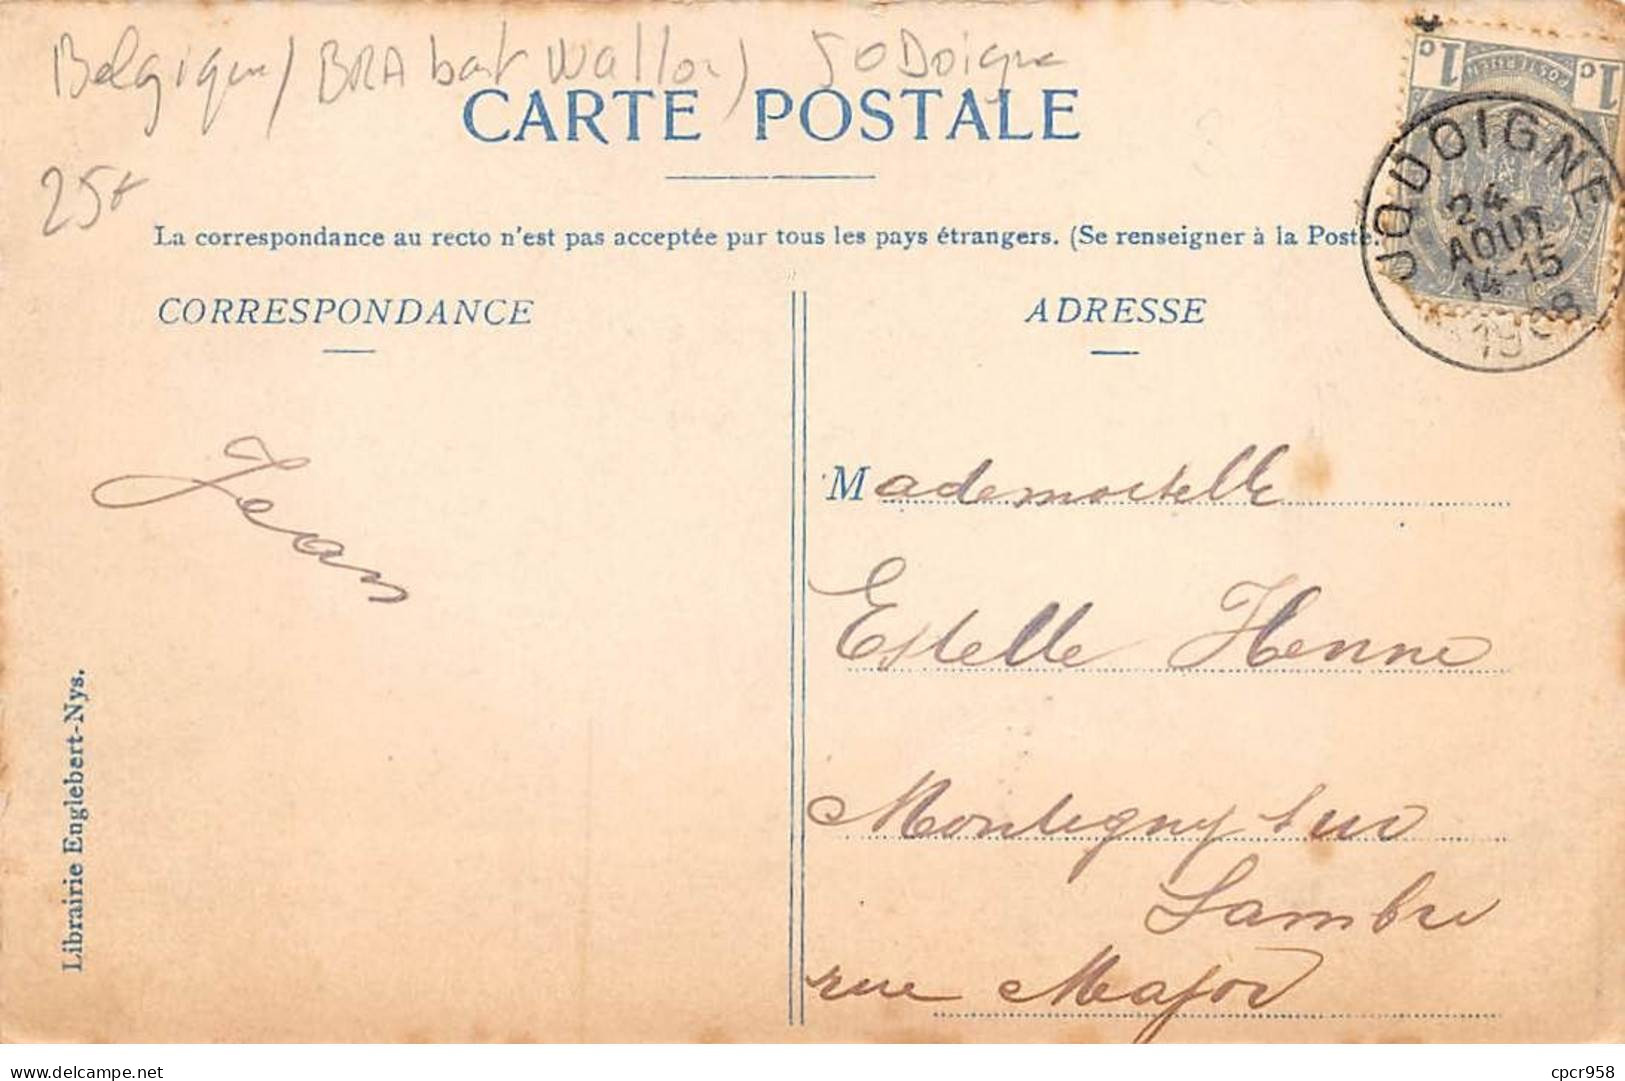 Belgique / BRAbant Wallon) JODoigne
CARTE POSTALE
25f
La correspondance au recto n'est pas acceptée par tous les pays étrangers. (Se renseigner à la Poste.
1c 1c
POSTERIJEN
JODOIGNE
24
AOUT
14-15
1908
CORRESPONDANCE
ADRESSE
Jean
Mademoiselle
Estelle Henne
Montigny sur
Sambre
rue Major
Librairie Englebert-Nys.
cpcr958